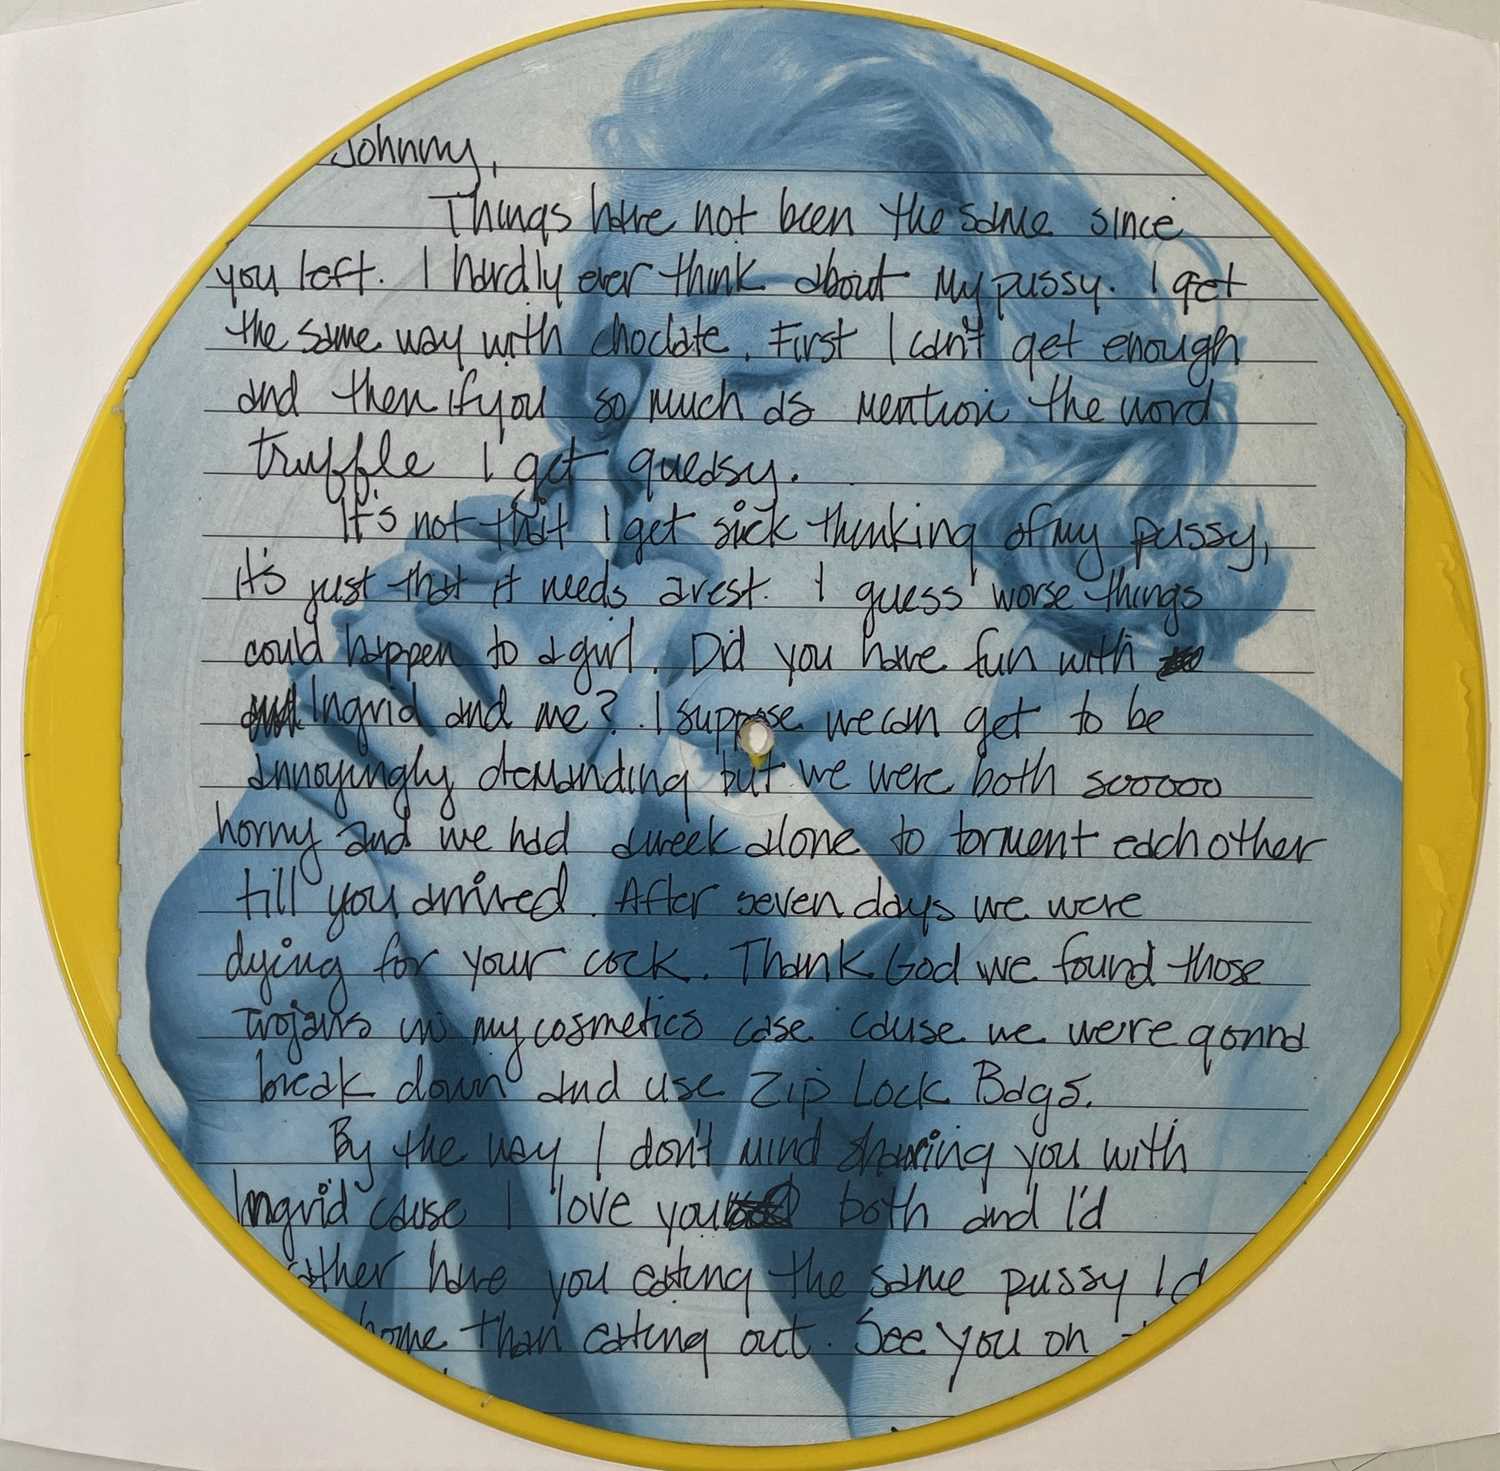 Johnny,
Things have not been the same since
you left. I hardly ever think about my pussy. I get
the same way with choclate. First I can't get enough
and then if you so much as mention the word
truffle I get queasy.
It's not that I get sick thinking of my pussy,
it's just that it needs a rest. I guess worse things
could happen to a girl. Did you have fun with
Ingrid and me? I suppose we can get to be
annoyingly demanding but we were both sooooo
horny and we had a week alone to torment each other
till you arrived. After seven days we were
dying for your cock. Thank God we found those
trojans in my cosmetics case 'cause we were gonna
break down and use Zip Lock Bags.
By the way I don't mind sharing you with
Ingrid 'cause I love you both and I'd
ather have you eating the same pussy I'd
home than eating out. See you on